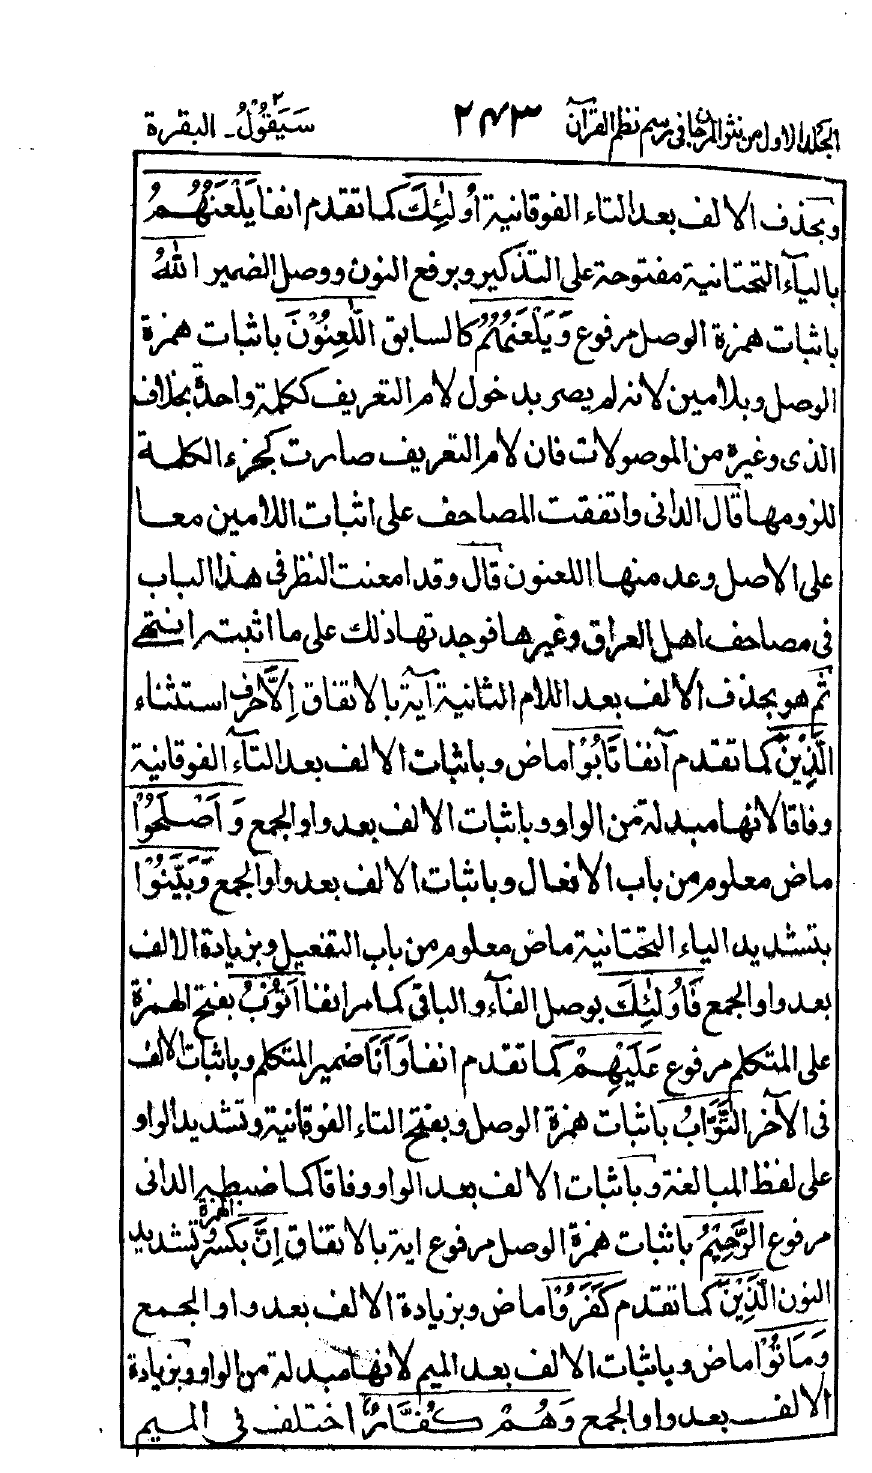 المجلد الاول من نثر المرجان في رسم نظم القرآن ٢٤٣ سَيَقُولُ ٢ـ البقرة
وبحذف الالف بعد التاء الفوقانية أُولٰئِكَ كما تقدم انفا يَلْعَنُهُمُ
بالياء التحتانية مفتوحة على التذكير وبرفع النون ووصل الضمير اللهُ
باثبات همزة الوصل مرفوع وَيَلْعَنُهُمُ كالسابق اللّٰعِنُوْنَ باثبات همزة
الوصل وبلامين لانه لم يصر بدخول لام التعريف ككلمة واحدة بخلاف
الذى وغيره من الموصولات فان لام التعريف صارت كجزء الكلمة
للزومها قال الدانى واتفقت المصاحف على اثبات اللامين معا
على الاصل وعد منها اللعنون قال وقد امعنت النظر فى هذا الباب
فى مصاحف اهل العراق وغيرها فوجدتها ذلك على ما اثبته انتهى
ثم هو بحذف الالف بعد اللام الثانية آية بالاتفاق اِلَّا حرف استثناء
الَّذِيْنَ كما تقدم آنفا تَابُوْا ماض وباثبات الالف بعد التآء الفوقانية
وفاقا لانها مبدلة من الواو وباثبات الالف بعد واو الجمع وَاَصْلَحُوْا
ماض معلوم من باب الافعال وباثبات الالف بعد واو الجمع وَبَيَّنُوْا
بتشديد الياء التحتانية ماض معلوم من باب التفعيل وبزيادة الالف
بعد واو الجمع فَاُولٰئِكَ بوصل الفآء والباقى كما مر انفا اَتُوْبُ بفتح الهمزة
على المتكلم مرفوع عَلَيْهِمْ كما تقدم انفا وَاَنَا ضمير المتكلم وباثبات الالف
فى الآخر التَّوَّابُ باثبات همزة الوصل وبفتح التاء الفوقانية وتشديد الواو
على لفظ المبالغة وباثبات الالف بعد الواو وفاقا كما ضبطه الدانى
مرفوع الرَّحِيْمُ باثبات همزة الوصل مرفوع اية بالاتفاق اِنَّ بكسر الهمزة وتشديد
النون الَّذِيْنَ كما تقدم كَفَرُوْا ماض وبزيادة الالف بعد واو الجمع
وَمَاتُوْا ماض وباثبات الالف بعد الميم لانها مبدلة من الواو وبزيادة
الالف بعد واو الجمع وَهُمْ كُفَّارٌ اختلف فى الميم